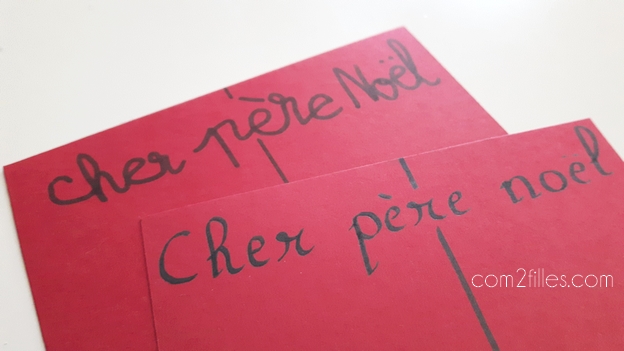 cher père Noël
Cher père noel
com2filles.com